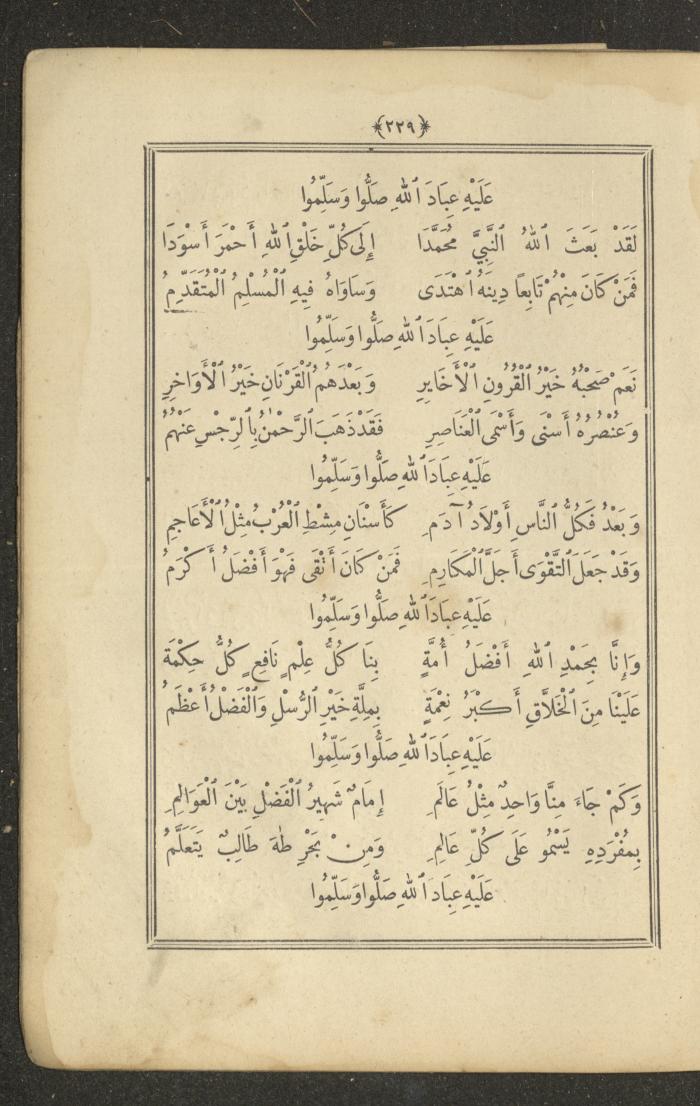 ﴿٢٢٩﴾
عَلَيْهِ عِبَادَ ٱللهِ صَلُّوا وَسَلِّمُوا
لَقَدْ بَعَثَ ٱللهُ ٱلنَّبِيَّ مُحَمَّدَا إِلَى كُلِّ خَلْقِ ٱللهِ أَحْمَرَ أَسْوَدَا
فَمَنْ كَانَ مِنْهُمْ تَابِعًا دِينَهُ ٱهْتَدَى وَسَاوَاهُ فِيهِ ٱلْمُسْلِمُ ٱلْمُتَقَدِّمُ
عَلَيْهِ عِبَادَ ٱللهِ صَلُّوا وَسَلِّمُوا
نَعَمْ صَحْبُهُ خَيْرُ ٱلْقُرُونِ ٱلْأَخَايِرِ وَبَعْدَهُمُ ٱلْقَرْنَانِ خَيْرُ ٱلْأَوَاخِرِ
وَعُنْصُرُهُ أَسْنَى وَأَسْمَى ٱلْعَنَاصِرِ فَقَدْ ذَهَبَ ٱلرَّحْمٰنُ بِٱلرِّجْسِ عَنْهُمُ
عَلَيْهِ عِبَادَ ٱللهِ صَلُّوا وَسَلِّمُوا
وَبَعْدُ فَكُلُّ ٱلنَّاسِ أَوْلَادُ آدَمِ كَأَسْنَانِ مِشْطِ ٱلْعُرْبُ مِثْلُ ٱلْأَعَاجِمِ
وَقَدْ جَعَلَ ٱلتَّقْوَى أَجَلَّ ٱلْمَكَارِمِ فَمَنْ كَانَ أَتْقَى فَهْوَ أَفْضَلُ أَكْرَمُ
عَلَيْهِ عِبَادَ ٱللهِ صَلُّوا وَسَلِّمُوا
وَإِنَّا بِحَمْدِ ٱللهِ أَفْضَلُ أُمَّةٍ بِنَا كُلُّ عِلْمٍ نَافِعٍ كُلُّ حِكْمَةِ
عَلَيْنَا مِنَ ٱلْخَلَّاقِ أَكْبَرُ نِعْمَةٍ بِمِلَّةِ خَيْرِ ٱلرُّسْلِ وَٱلْفَضْلُ أَعْظَمُ
عَلَيْهِ عِبَادَ ٱللهِ صَلُّوا وَسَلِّمُوا
وَكَمْ جَاءَ مِنَّا وَاحِدٌ مِثْلُ عَالَمِ إِمَامٌ شَهِيرُ ٱلْفَضْلِ بَيْنَ ٱلْعَوَالِمِ
بِمُفْرَدِهِ يَسْمُو عَلَى كُلِّ عَالِمِ وَمِنْ بَحْرِ طٰهَ طَالِبٌ يَتَعَلَّمُ
عَلَيْهِ عِبَادَ ٱللهِ صَلُّوا وَسَلِّمُوا